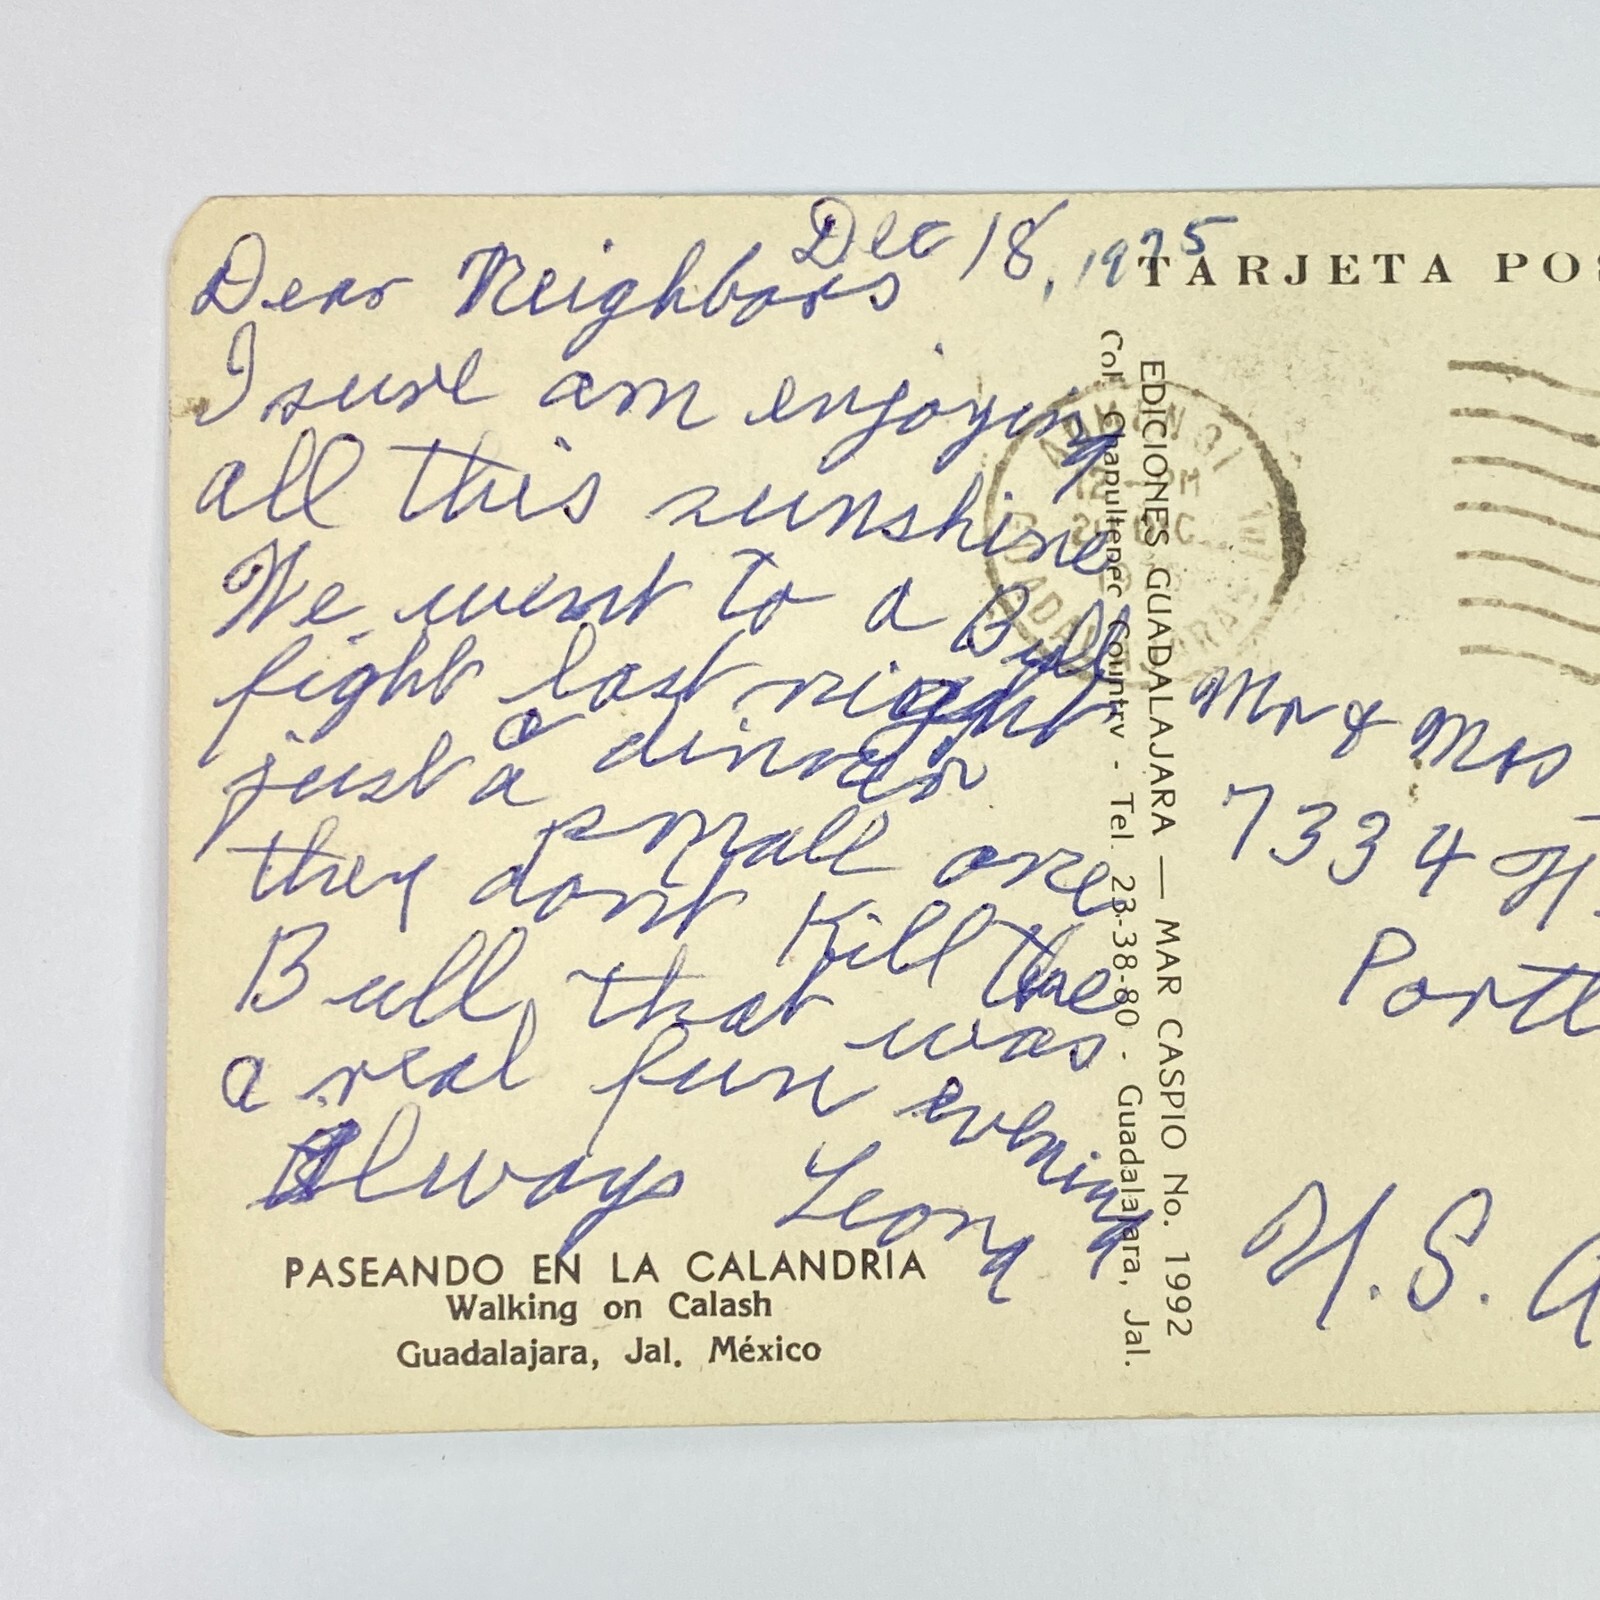 Dec 18, 1975
Dear Neighbors
I sure am enjoying
all this sunshine
We went to a Bull
fight last night
just a dinner
a small one
they dont Kill the
Bull, that was
a real fun evening
Always Leona
PASEANDO EN LA CALANDRIA
Walking on Calash
Guadalajara, Jal. México
EDICIONES GUADALAJARA — MAR CASPIO No. 1992
Col. Chapultepec Country - Tel. 23-38-80 - Guadalajara, Jal.
TARJETA POS
Mr & Mrs
7334 N.
Portl
U.S. A